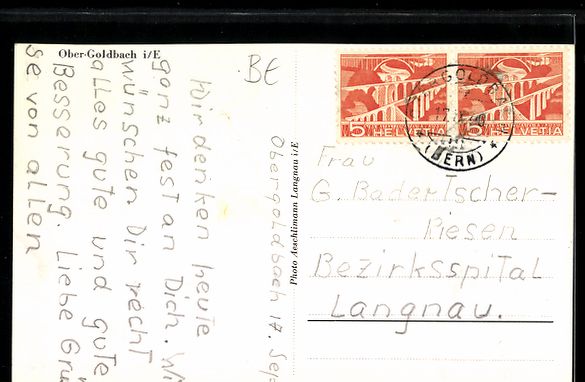 Ober-Goldbach i/E
BE
Obergoldbach 17. Sep
Wir denken heute
ganz fest an Dich. Wi
wünschen Dir recht
alles gute und gute
Besserung. Liebe Grü
se von allen
Photo Aeschlimann Langnau i/E
5 HELVETIA
5 HELVETIA
GOLDBA
(BERN)
Frau
G. Badertscher-
Riesen
Bezirksspital
Langnau.